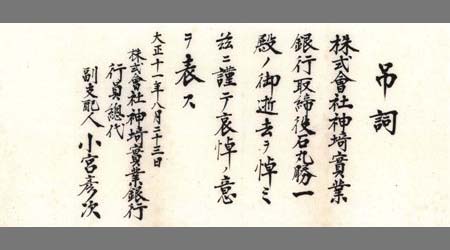 吊詞
株式會社神埼實業
銀行取締役石丸勝一
殿ノ御逝去ヲ悼ミ
玆ニ謹テ哀悼ノ意
ヲ表ス
大正十一年八月二十三日
株式會社神埼實業銀行
行員總代
副支配人 小宮彦次